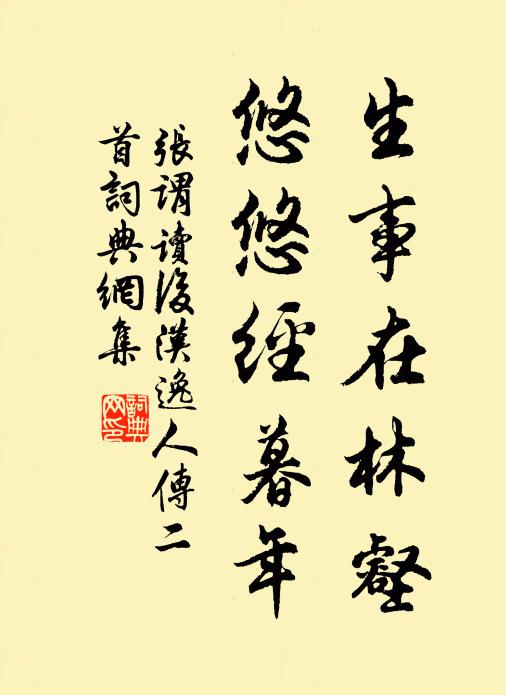 生事在林壑
悠悠經暮年
張謂讀後漢逸人傳二
首詞典網集
詞典
网印